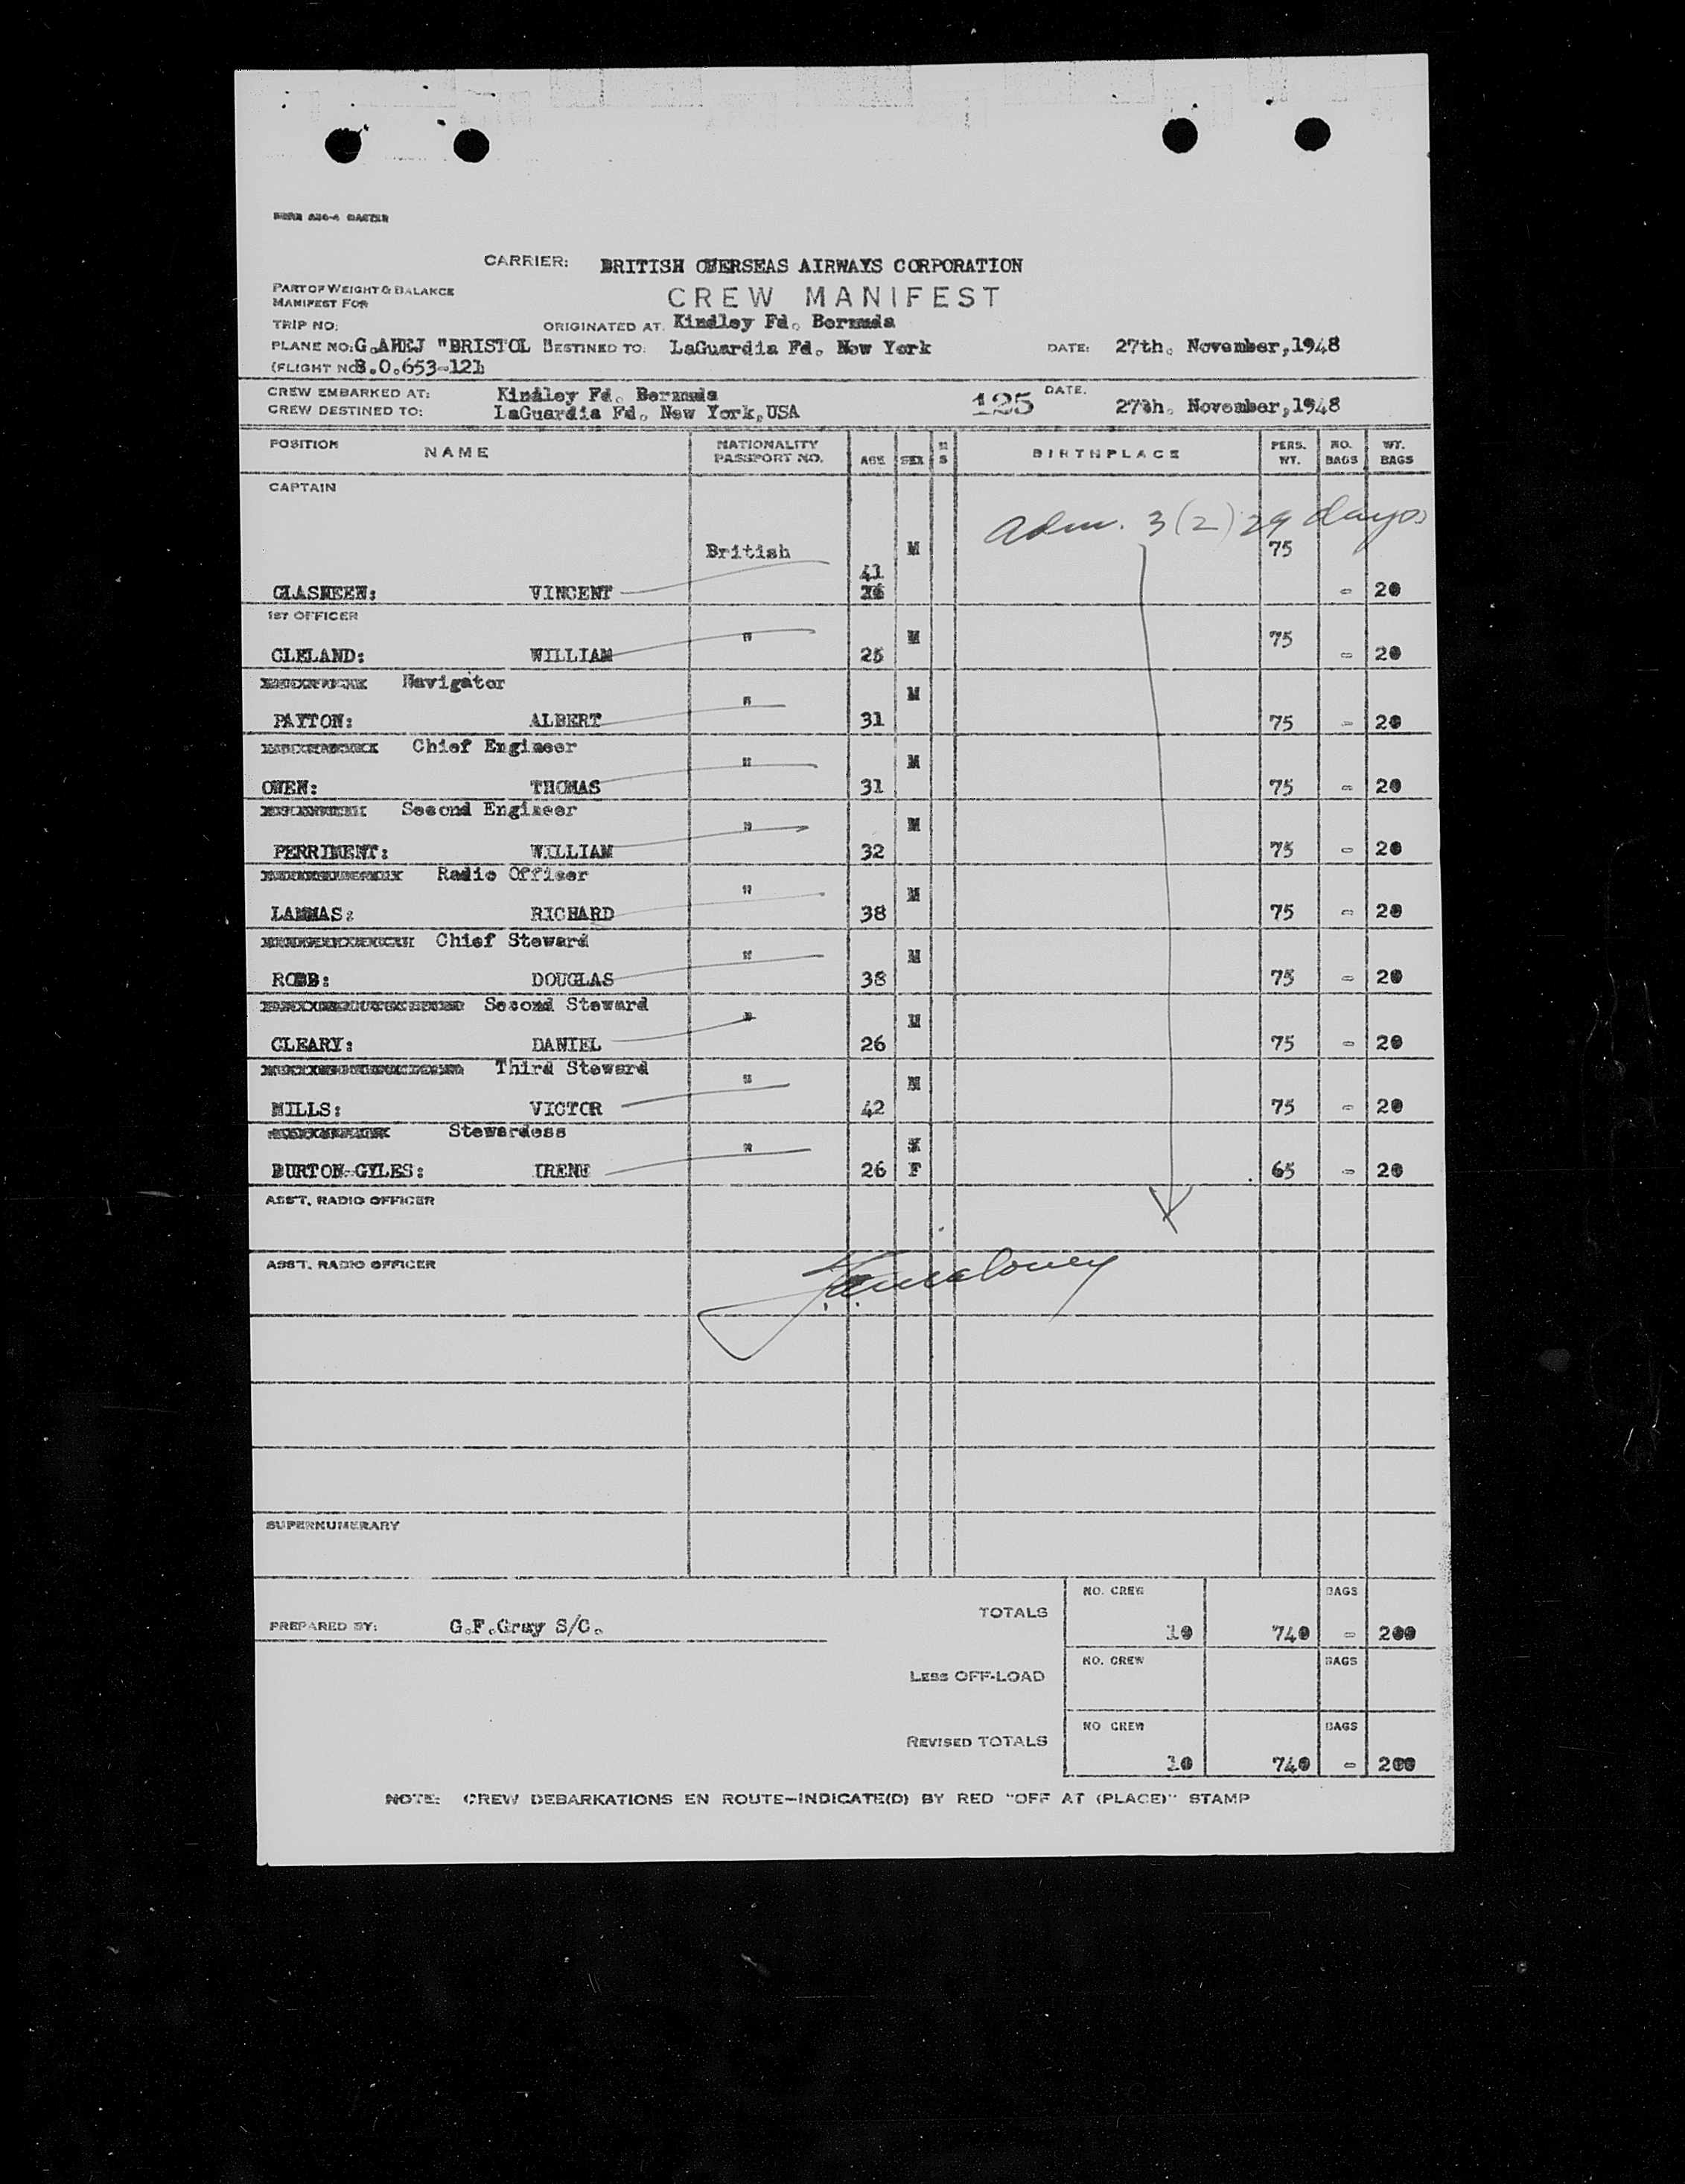 CARRIER: BRITISH OVERSEAS AIRWAYS CORPORATION
PART OF WEIGHT & BALANCE
MANIFEST FOR
CREW MANIFEST
TRIP NO: ORIGINATED AT. Kindley Fd. Bermuda
PLANE NO: G.AHEJ "BRISTOL " DESTINED TO: LaGuardia Fd. New York DATE: 27th. November,1948
(FLIGHT NO B.O.653-121
CREW EMBARKED AT: Kindley Fd. Bermuda 125 DATE.
CREW DESTINED TO: LaGuardia Fd. New York,USA 27th. November,1948
POSITION NAME NATIONALITY PASSPORT NO. AGE SEX M S BIRTHPLACE PERS. WT. NO. BAGS WT. BAGS
CAPTAIN
Adm. 3(2) 29 days
British M 75
41
GLASHEEN: VINCENT - 20
1ST OFFICER
" M 75
CLELAND: WILLIAM 25 - 20
Navigator
" M
PAYTON: ALBERT 31 75 - 20
Chief Engineer
" M
OWEN: THOMAS 31 75 - 20
Second Engineer
" M
PERRIMENT: WILLIAM 32 75 - 20
Radio Officer
" M
LAMMAS: RICHARD 38 75 - 20
Chief Steward
" M
ROBB: DOUGLAS 38 75 - 20
Second Steward
" M
CLEARY: DANIEL 26 75 - 20
Third Steward
" M
MILLS: VICTOR 42 75 - 20
Stewardess
"
BURTON-GYLES: IRENE 26 F 65 - 20
ASST. RADIO OFFICER
ASST. RADIO OFFICER
SUPERNUMERARY
NO. CREW BAGS
TOTALS
PREPARED BY: G.F.Gray S/C. 10 740 - 200
NO. CREW BAGS
LESS OFF-LOAD
NO CREW BAGS
REVISED TOTALS
10 740 - 200
NOTE: CREW DEBARKATIONS EN ROUTE-INDICATE(D) BY RED "OFF AT (PLACE)" STAMP